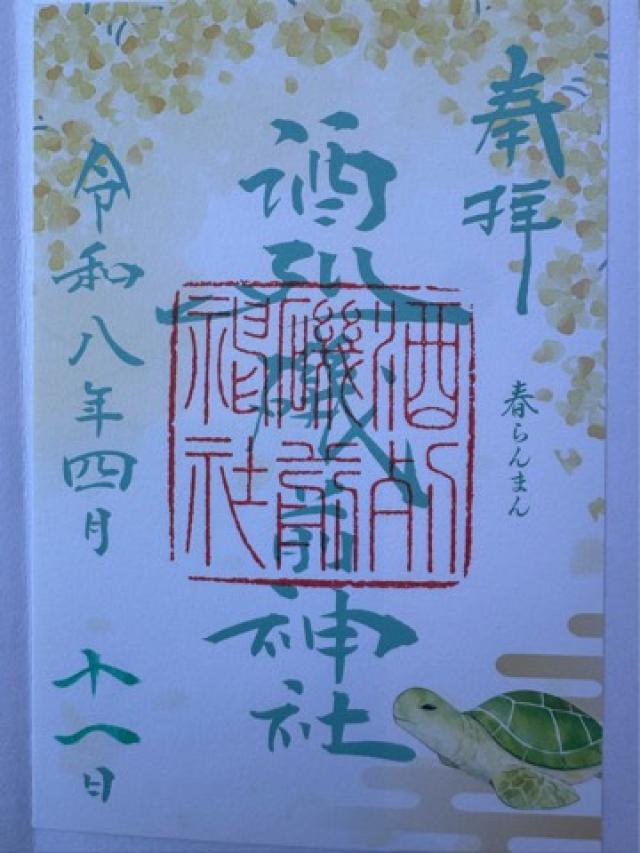 奉拝
春らんまん
酒列磯前神社
酒列
磯前
神社
令和八年四月十八日